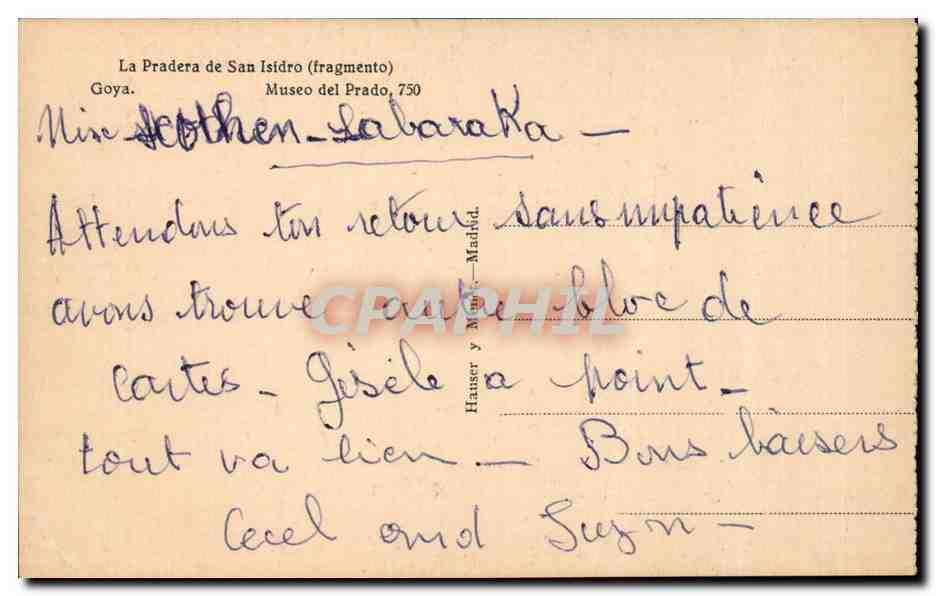 La Pradera de San Isidro (fragmento)
Goya. Museo del Prado, 750
Labaraka —
Attendons ton retour sans impatience
avons trouvé autre bloc de
cartes - Gisèle a point -
tout va bien — Bons baisers
Cecel and Suzon —
Hauser y Menet.—Madrid.
CPAPHIL